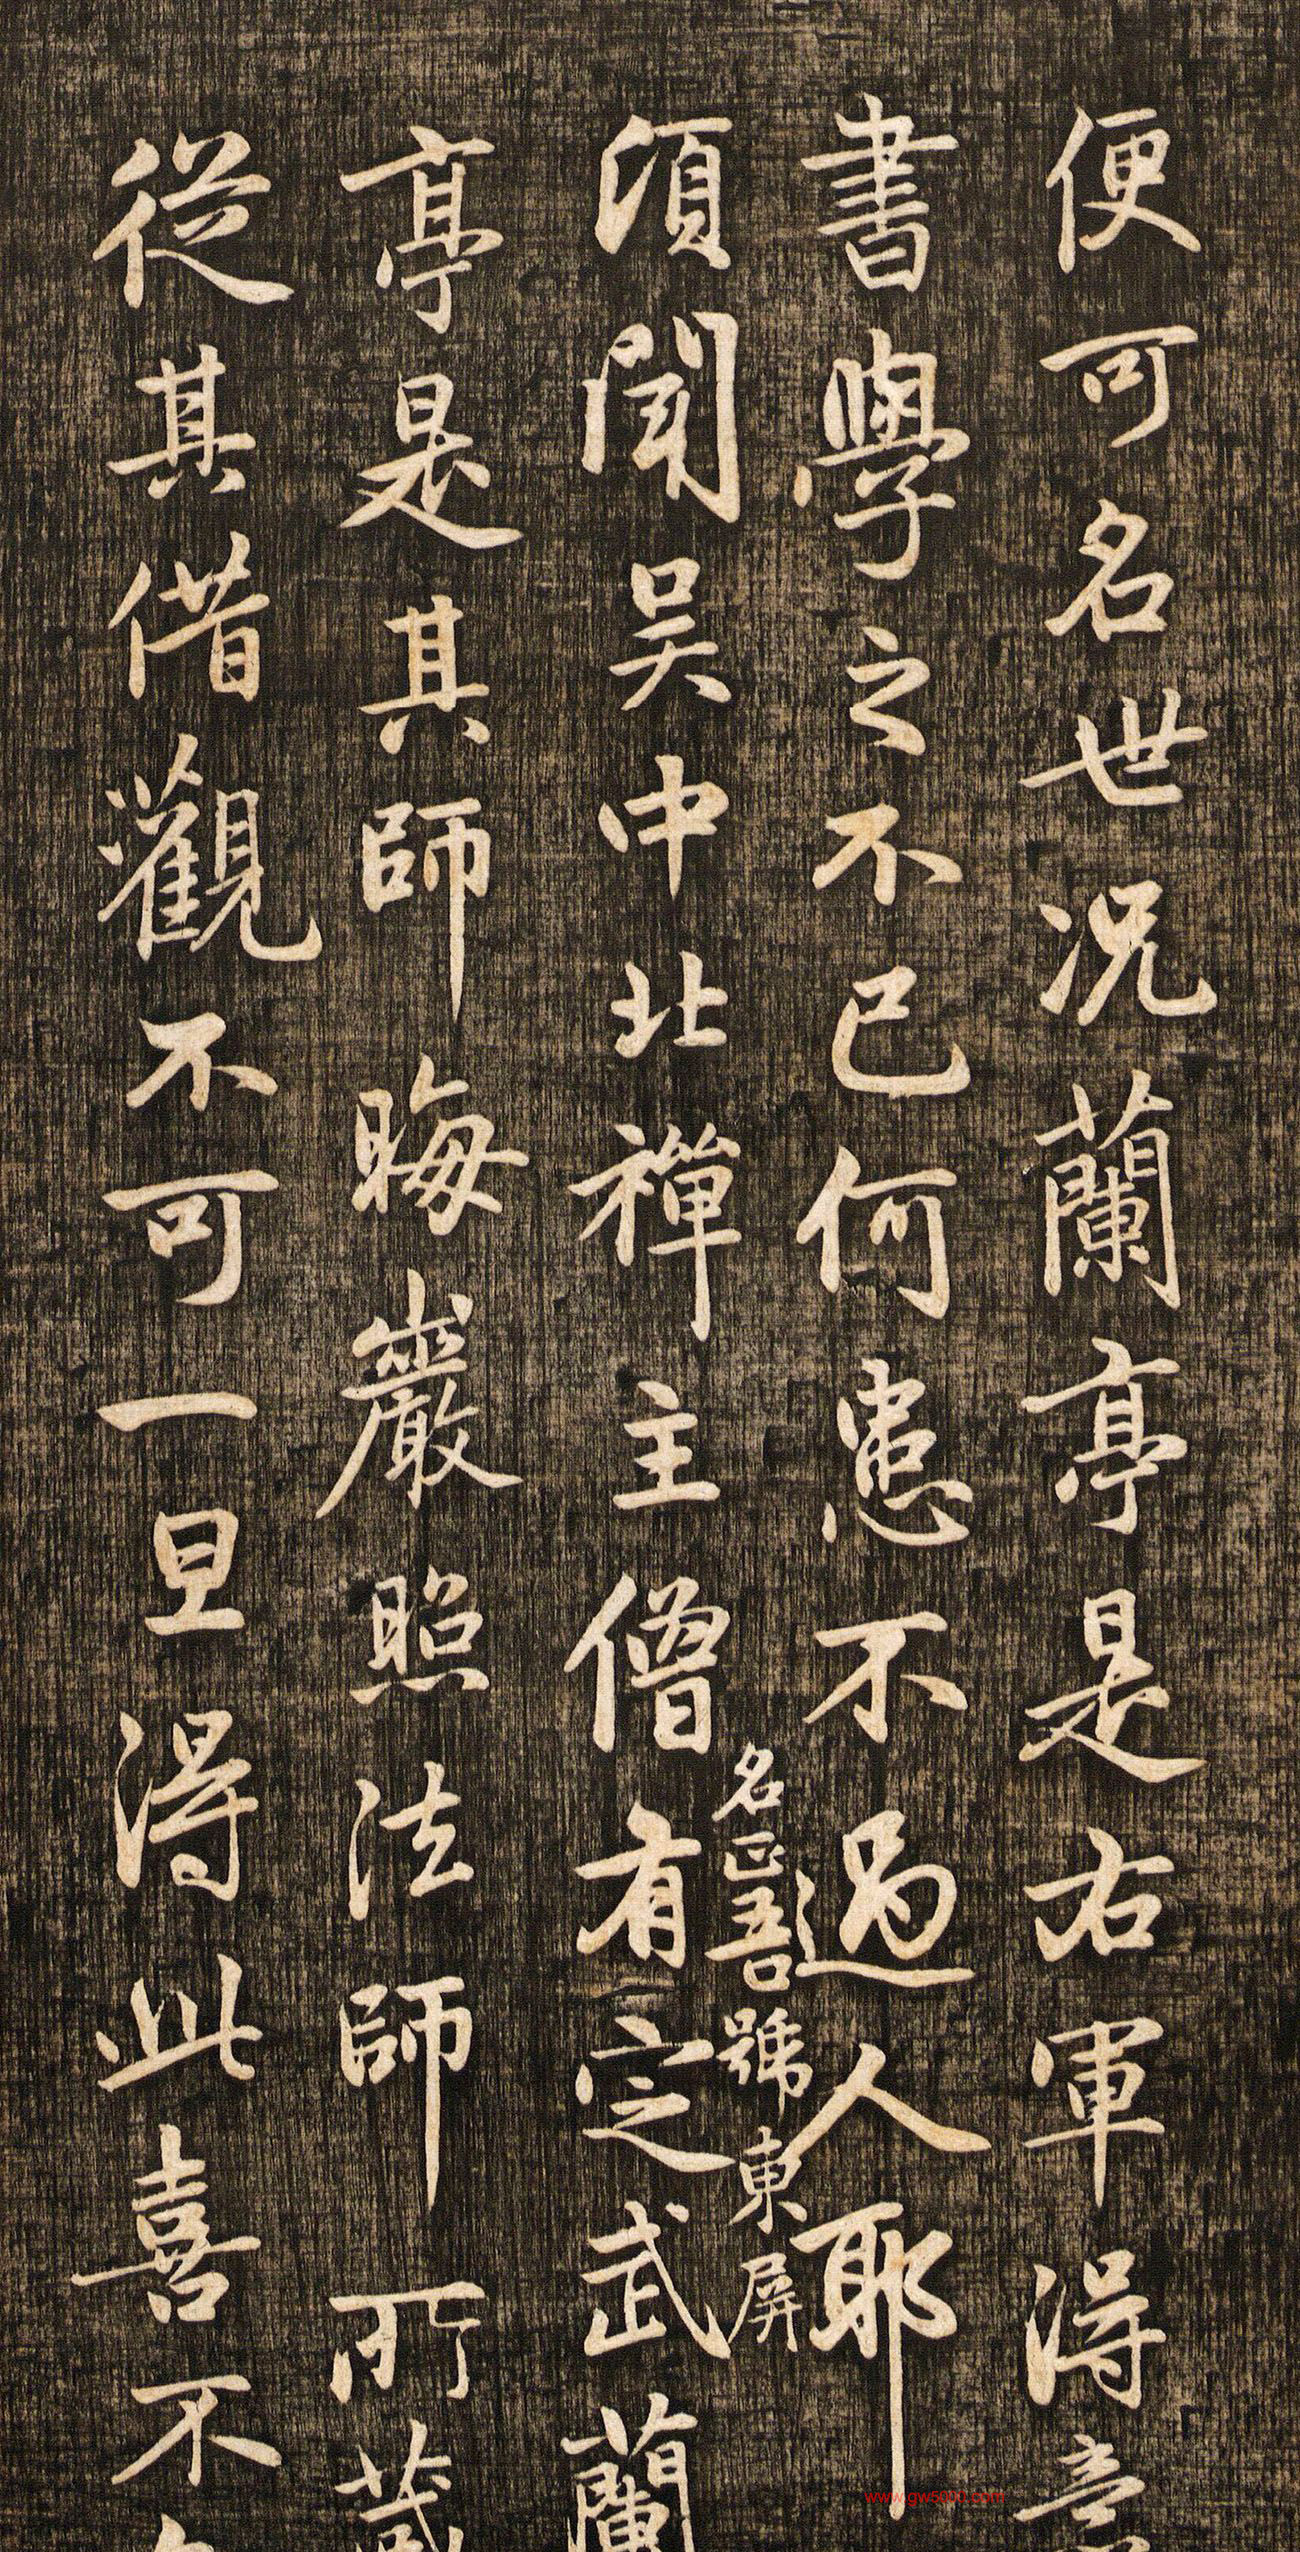 便可名世況蘭亭是右軍得意
書學之不已何患不過人耶
須聞吳中北禪主僧有定武蘭
名正吾號東屏
亭是其師晦巖照法師所藏
從其借觀不可一旦得此喜不
www.gw5000.com